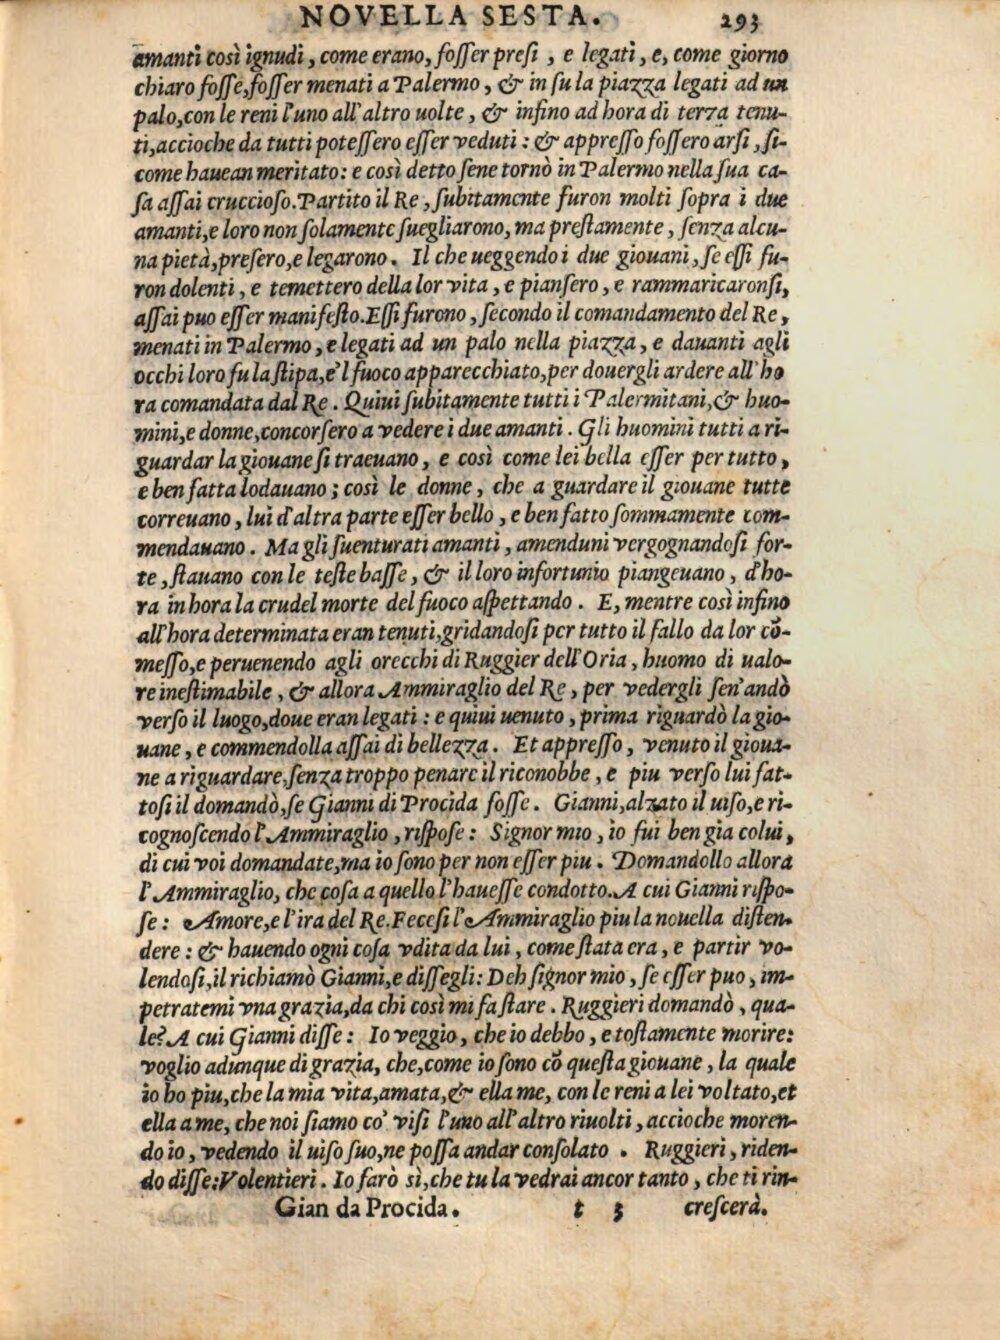 NOVELLA SESTA. 293
amanti così ignudi, come erano, foſſer preſi, e legati, e, come giorno
chiaro foſſe, foſſer menati a Palermo, & in ſu la piazza legati ad un
palo, con le reni l'uno all'altro uolte, & infino ad hora di terza tenu-
ti, accioche da tutti poteſſero eſſer veduti: & appreſſo foſſero arſi, ſi-
come haueან meritato: e così detto ſene tornò in Palermo nella ſua ca-
ſa aſſai cruccioſo. Partito il Re, ſubitamente furon molti ſopra i due
amanti, e loro non ſolamente ſuegliarono, ma preſtamente, ſenza alcu-
na pietà, preſero, e legarono. Il che ueggendo i due giouani, ſe eſſi fu-
ron dolenti, e temettero della lor vita, e pianſero, e rammaricaronſi,
aſſai puo eſſer manifeſto. Eſſi furono, ſecondo il comandamento del Re,
menati in Palermo, e legati ad un palo nella piazza, e dauanti agli
occhi loro fu la ſtipa, e'l fuoco apparecchiato, per douergli ardere all'ho
ra comandata dal Re. Quiui ſubitamente tutti i Palermitani, & huo-
mini, e donne, concorſero a vedere i due amanti. Gli huomini tutti a ri-
guardar la giouane ſi traeuano, e così come lei bella eſſer per tutto,
e ben fatta lodauano; così le donne, che a guardare il giouane tutte
correuano, lui d'altra parte eſſer bello, e ben fatto ſommamente com-
mendauano. Ma gli ſuenturati amanti, amenduni vergognandoſi for-
te, ſtauano con le teſte baſſe, & il loro infortunio piangeuano, d'ho-
ra in hora la crudel morte del fuoco aſpettando. E, mentre così infino
all'hora determinata eran tenuti, gridandoſi per tutto il fallo da lor cõ-
meſſo, e peruenendo agli orecchi di Ruggier dell'Oria, huomo di ualo-
re ineſtimabile, & allora Ammiraglio del Re, per vedergli ſen'andò
verſo il luogo, doue eran legati: e quiui uenuto, prima riguardò la gio-
uane, e commendolla aſſai di bellezza. Et appreſſo, venuto il gioua-
ne a riguardare, ſenza troppo penare il riconobbe, e piu verſo lui fat-
toſi il domandò, ſe Gianni di Procida foſſe. Gianni, alzato il uiſo, e ri-
cognoſcendo l'Ammiraglio, riſpoſe: Signor mio, io fui ben gia colui,
di cui voi domandate, ma io ſono per non eſſer piu. Domandollo allora
l'Ammiraglio, che coſa a quello l'haueſſe condotto. A cui Gianni riſpo-
ſe: Amore, e l'ira del Re. Feceſi l'Ammiraglio piu la nouella diſten-
dere: & hauendo ogni coſa vdita da lui, come ſtata era, e partir vo-
lendoſi, il richiamò Gianni, e diſſegli: Deh ſignor mio, ſe eſſer puo, im-
petratemi vna grazia, da chi così mi fa ſtare. Ruggieri domandò, qua-
le? A cui Gianni diſſe: Io veggio, che io debbo, e toſtamente morire:
voglio adunque di grazia, che, come io ſono cõ queſta giouane, la quale
io ho piu, che la mia vita, amata, & ella me, con le reni a lei voltato, et
ella a me, che noi ſiamo co' viſi l'uno all'altro riuolti, accioche moren-
do io, vedendo il uiſo ſuo, ne poſſa andar conſolato. Ruggieri, riden-
do diſſe: Volentieri. Io farò sì, che tu la vedrai ancor tanto, che ti rin-
Gian da Procida. t 3 creſcerà.